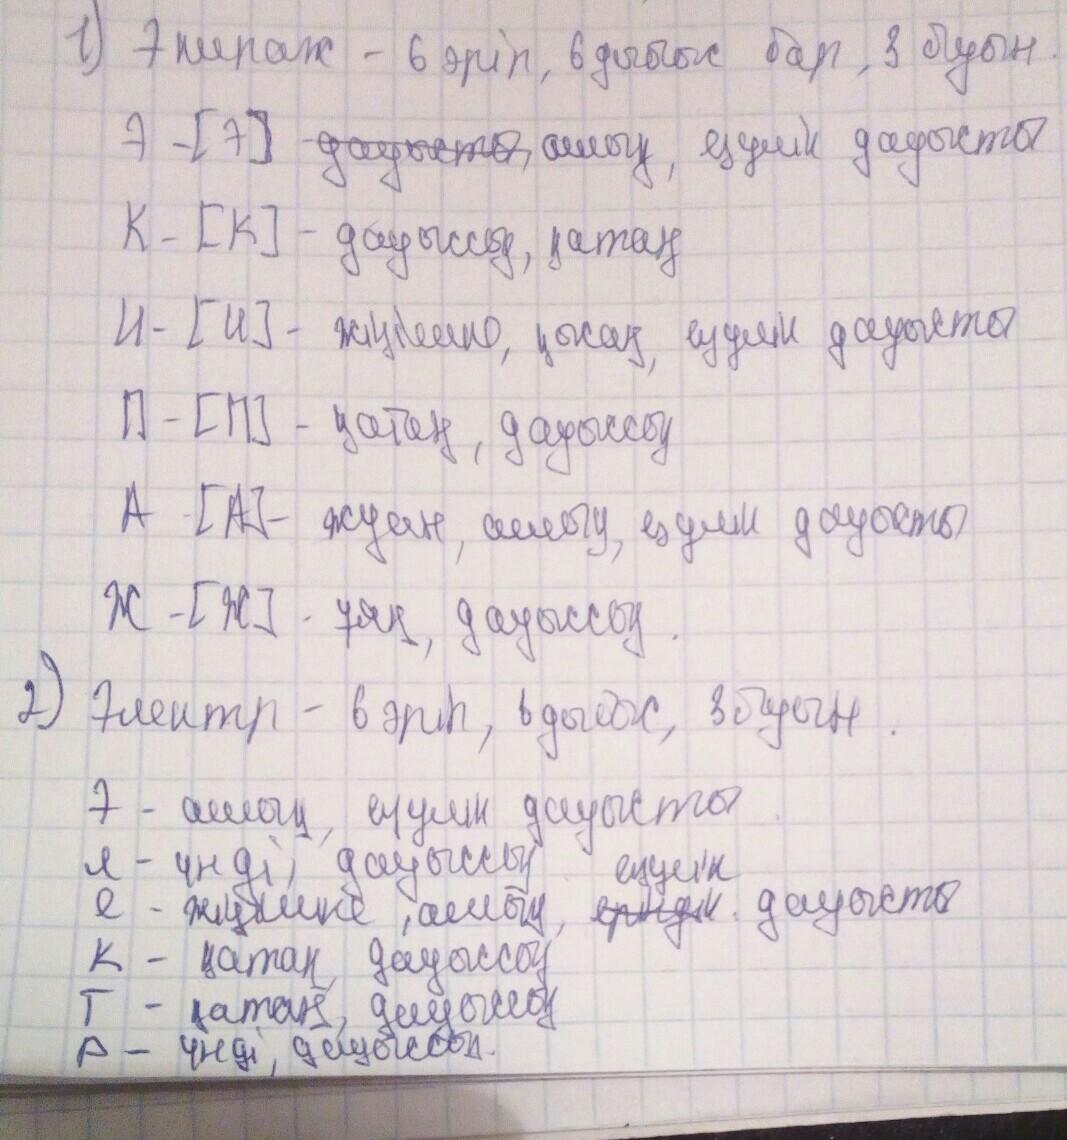 1) Экипаж - 6 әріп, 6 дыбыс бар, 3 буын.
Э - [Э] - дауысты, ашық, езулік дауысты
К - [К] - дауыссыз, қатаң
И - [И] - жіңішке, қысаң, езулік дауысты
П - [П] - қатаң, дауыссыз
А - [А] - жуан, ашық, езулік дауысты
Ж - [Ж] - ұяң, дауыссыз.
2) Электр - 6 әріп, 6 дыбыс, 3 буын.
Э - ашық, езулік дауысты
л - үнді, дауыссыз езулік
е - жіңішке, ашық, дауысты
К - қатаң, дауыссыз
Т - қатаң, дауыссыз
Р - үнді, дауыссыз.